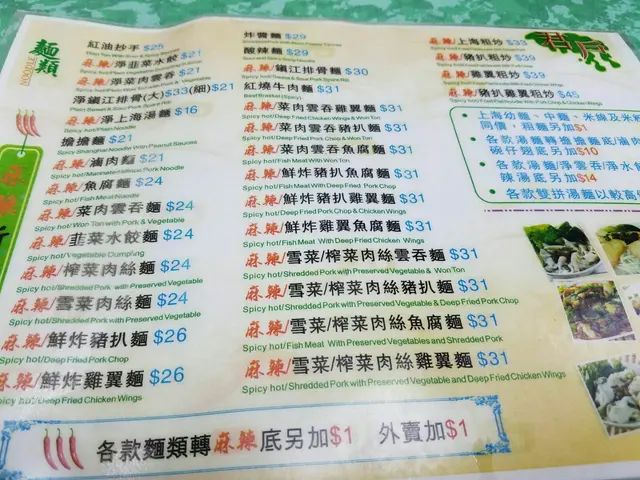 麵類
NOODLE
紅油抄手 $25
麻辣/淨韭菜水餃 $21
麻辣/淨菜肉雲吞 $21
淨鎮江排骨(大)$33(細)$21
麻辣/淨上海湯麵 $16
Spicy hot/Plain Noodle
擔擔麵 $21
Spicy Shanghai Noodle with Peanut Sauces
麻辣/滷肉麵 $21
麻辣/魚腐麵 $24
Spicy hot/Fish Meat Noodle
麻辣/菜肉雲吞麵 $24
Spicy hot/Won Ton with Pork & Vegetable
麻辣/韭菜水餃麵 $24
Spicy hot/Vegetable Dumpling
麻辣/榨菜肉絲麵 $24
Spicy hot/Shredded Pork with Preserved Vegetable
麻辣/雪菜肉絲麵 $24
Spicy hot/Shredded Pork with Preserved Vegetable
麻辣/鮮炸豬扒麵 $26
Spicy hot/Deep Fried Pork Chop
麻辣/鮮炸雞翼麵 $26
Spicy hot/Deep Fried Chicken Wings
炸醬麵 $29
酸辣麵 $29
麻辣/鎮江排骨麵 $30
紅燒牛肉麵 $31
麻辣/菜肉雲吞雞翼麵 $31
麻辣/菜肉雲吞豬扒麵 $31
Spicy hot/Deep Fried Pork Chop & Won Ton
麻辣/菜肉雲吞魚腐麵 $31
Spicy hot/Fish Meat With Won Ton
麻辣/鮮炸豬扒魚腐麵 $31
Spicy hot/Fish Meat With Deep Fried Pork Chop
麻辣/鮮炸豬扒雞翼麵 $31
Spicy hot/Deep Fried Pork Chop & Chicken Wings
麻辣/鮮炸雞翼魚腐麵 $31
Spicy hot/Fish Meat With Deep Fried Chicken Wings
麻辣/雪菜/榨菜肉絲雲吞麵 $31
Spicy hot/Shredded Pork with Preserved Vegetable & Won Ton
麻辣/雪菜/榨菜肉絲豬扒麵 $31
Spicy hot/Shredded Pork with Preserved Vegetable & Deep Fried Pork Chop
麻辣/雪菜/榨菜肉絲魚腐麵 $31
Spicy hot/Fish Meat With Preserved Vegetables and Shredded Pork
麻辣/雪菜/榨菜肉絲雞翼麵 $31
Spicy hot/Shredded Pork with Preserved Vegetable and Deep Fried Chicken Wings
麻辣/上海粗炒 $33
麻辣/豬扒粗炒 $39
麻辣/雞翼粗炒 $39
麻辣/豬扒雞翼粗炒 $45
上海幼麵、中麵、米線及米粉
同價,粗麵另加$1
各款湯麵轉擔擔麵底/滷肉
碗仔翅底另加$10
各款湯麵/淨雲吞/淨水
辣湯底另加$14
各款雙拼湯麵以較高價
麻辣
各款麵類轉麻辣底另加$1 外賣加$1